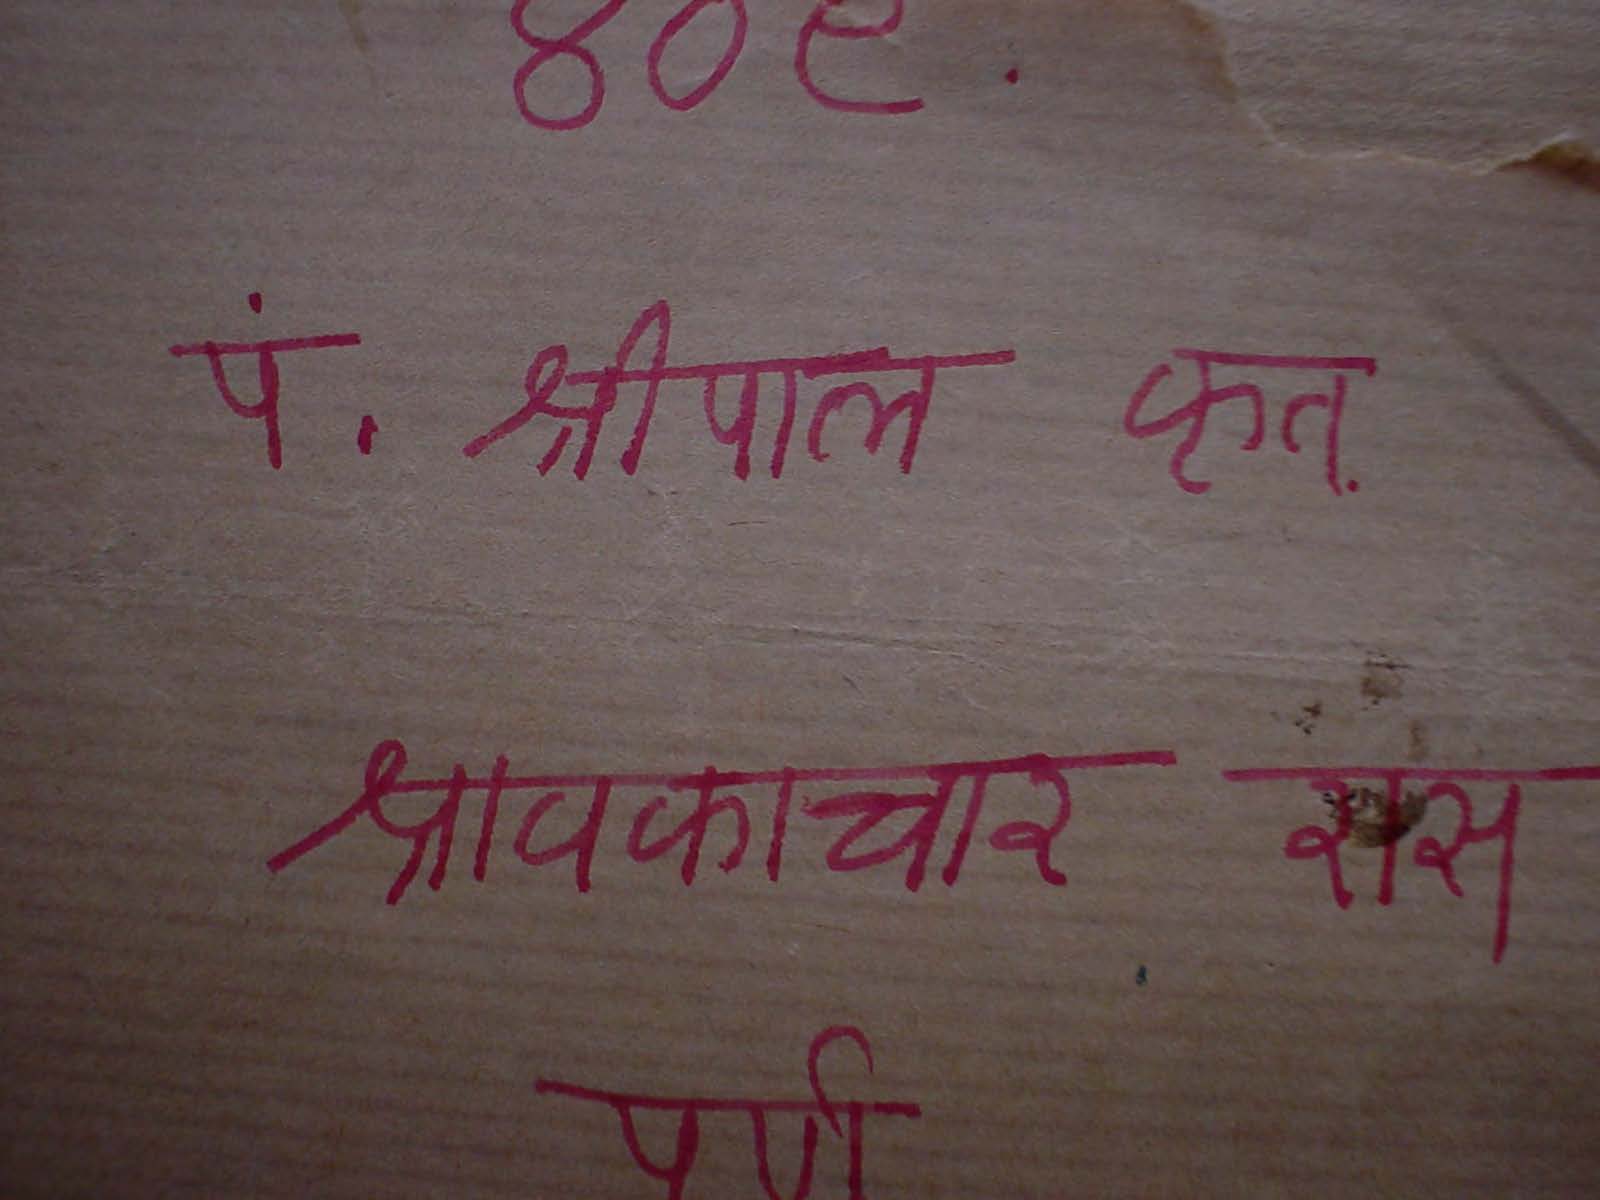 ४०९.
पं. श्रीपाल कृत.
श्रावकाचार रास
पूर्ण